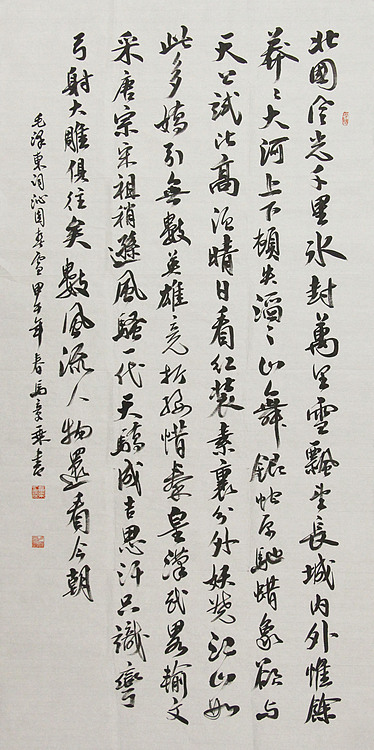 北國風光千里冰封萬里雪飄望長城內外惟餘
莽〻大河上下頓失滔〻山舞銀蛇原馳蜡象欲与
天公試比高須晴日看紅裝素裹分外妖嬈江山如
此多嬌引無數英雄竞折腰惜秦皇漢武畧輸文
采唐宗宋祖稍遜風騷一代天驕成吉思汗只識彎
弓射大雕俱往矣數風流人物還看今朝
毛澤東詞沁園春雪甲午年春馬書